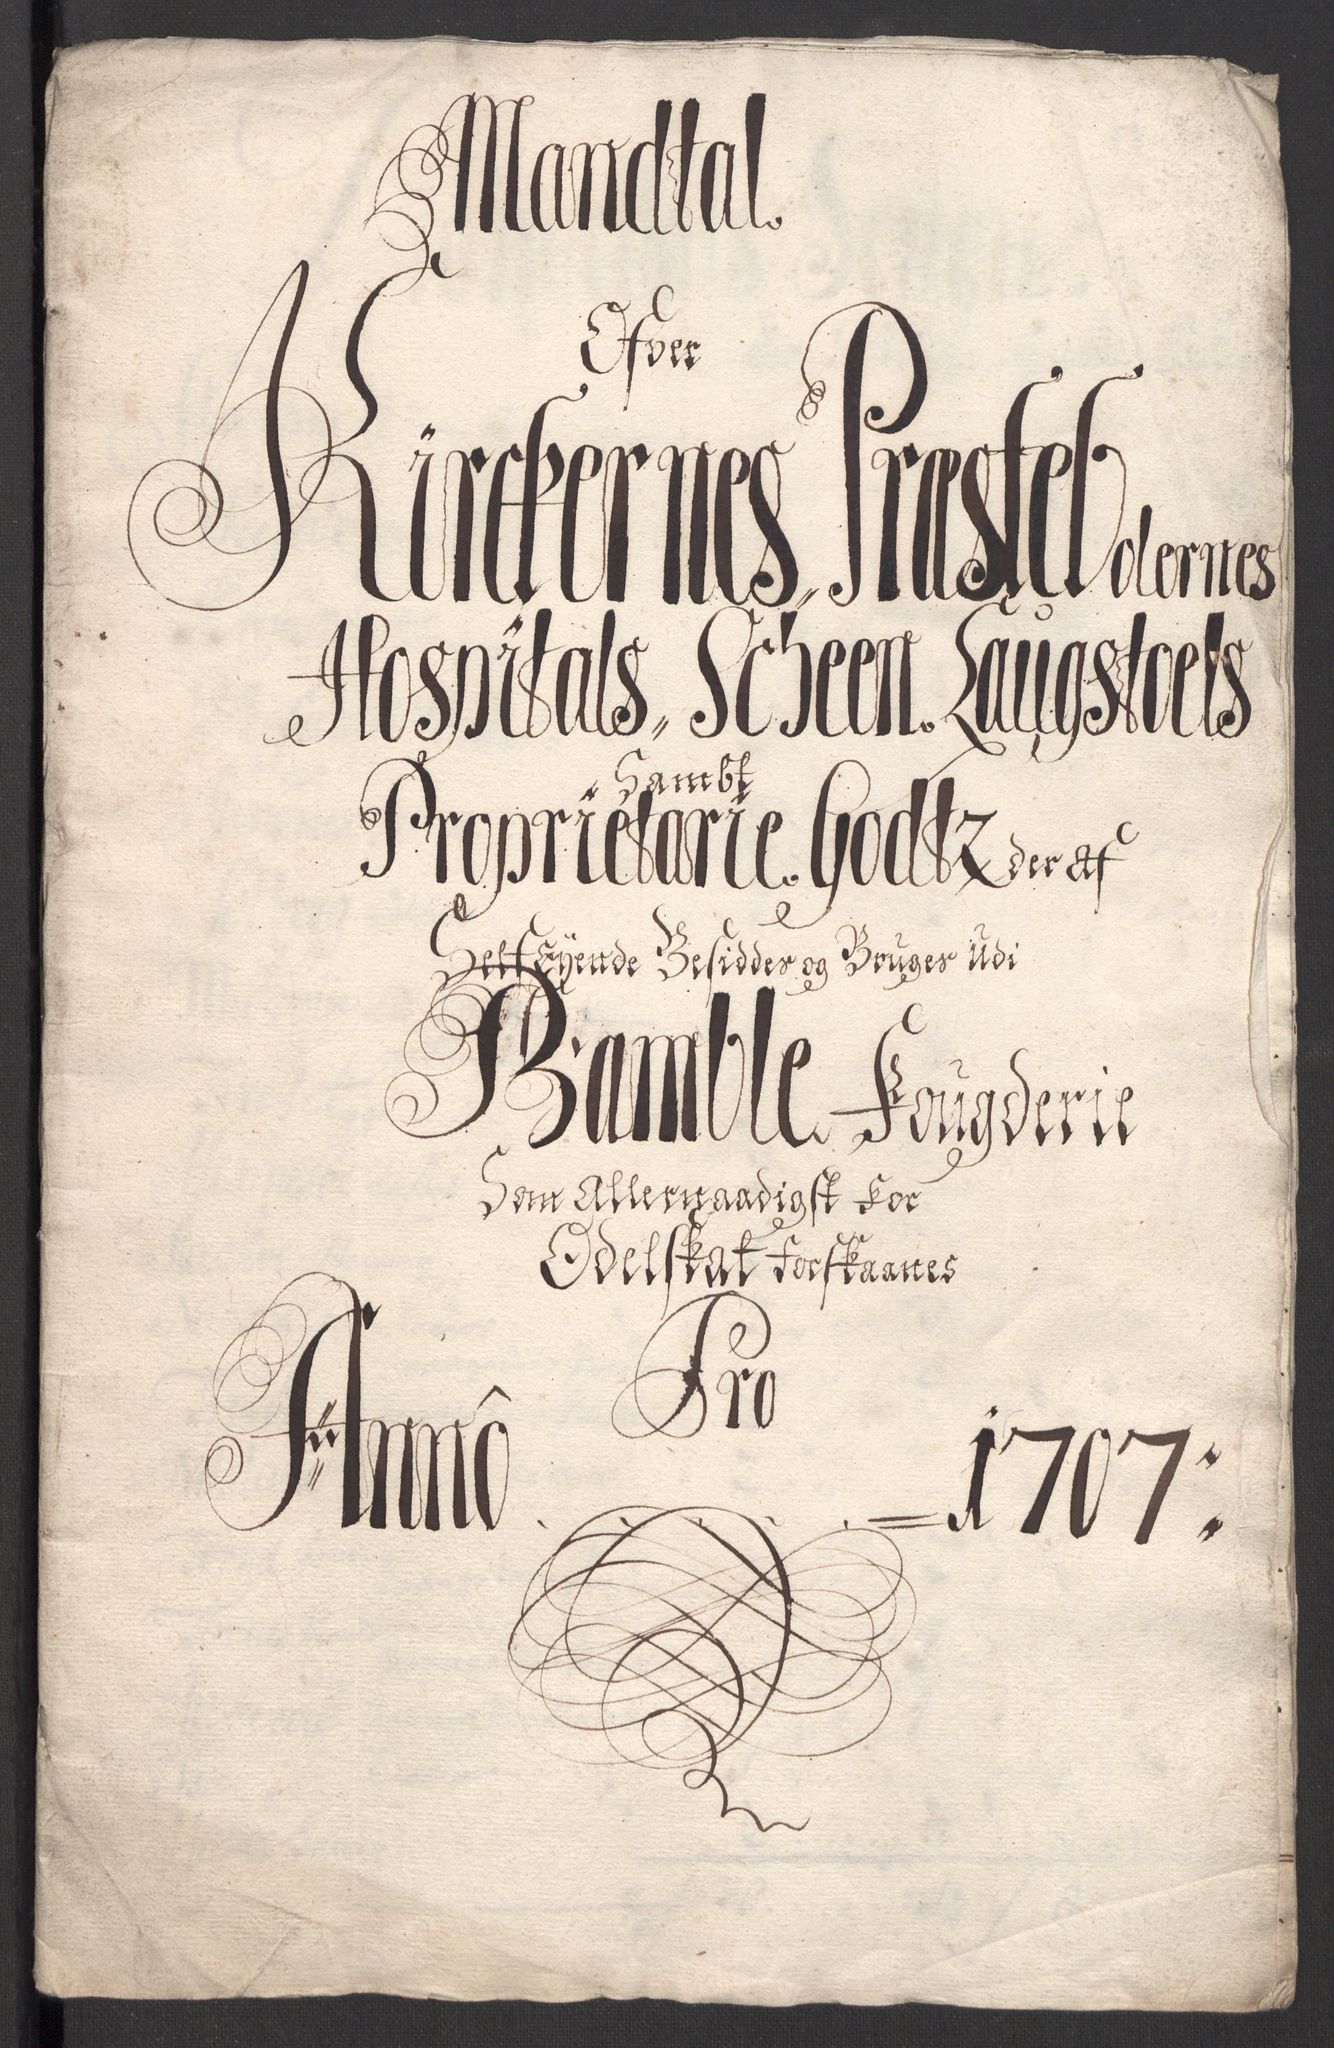 Mandtal.
Ofver
Kirckernes, Præsteb olernes
Hospitals, Scheen. Laugstoels
Sambt
Proprietarie. Godtz der af
Self Eyende Besidder og Bruger Udi
Bamble Fougderie
Som Allernaadigst for
Odelskat forskaanes
Pro
Anno . . . . . = 1707: